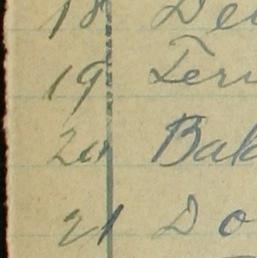 18 De
19 Ter
20 Bak
21 Do